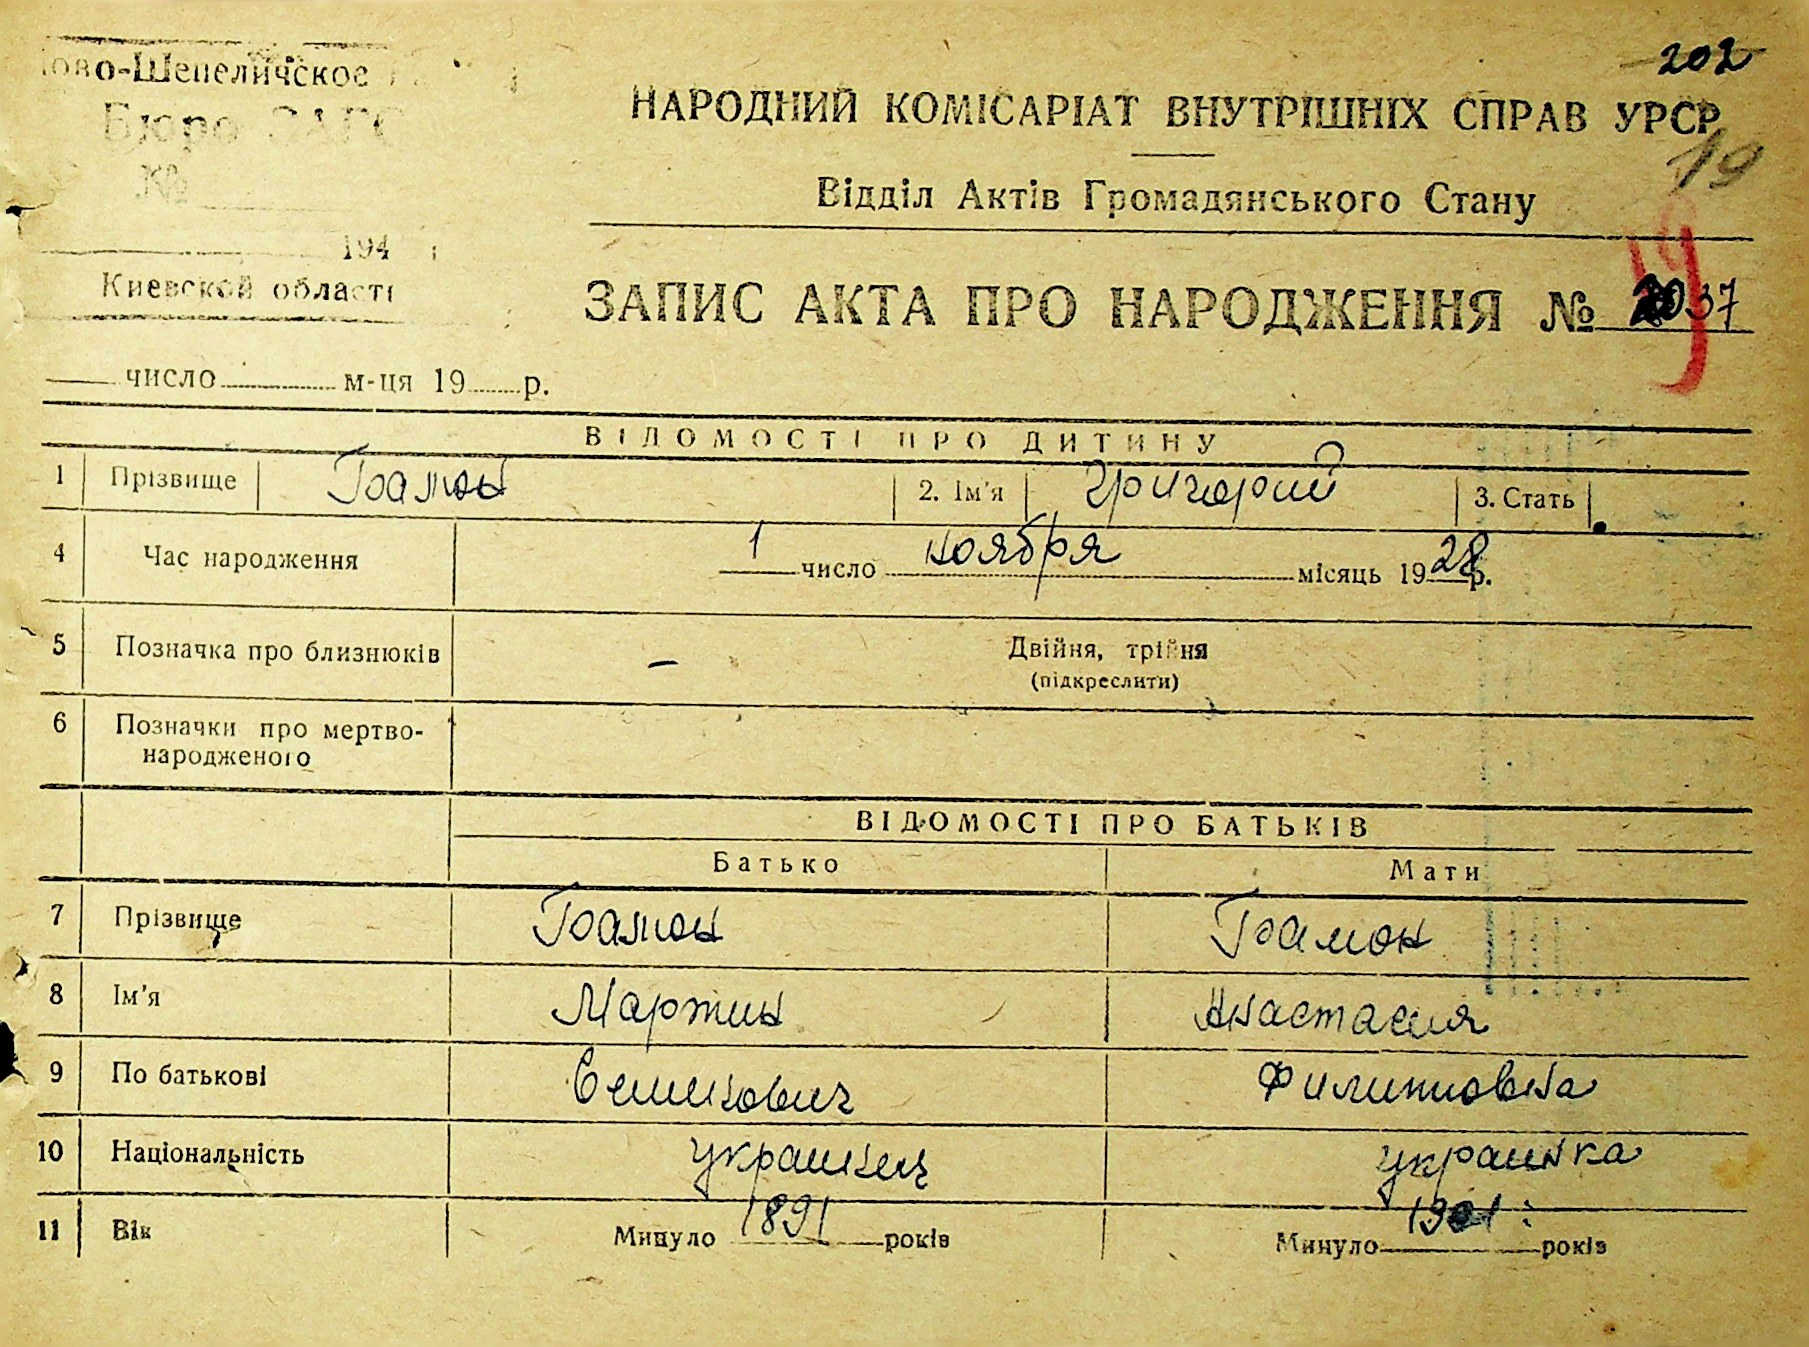 202
ово-Шепеличское
Бюро ЗАГС
№
194
Киевской області
НАРОДНИЙ КОМІСАРІАТ ВНУТРІШНІХ СПРАВ УРСР
19
Відділ Актів Громадянського Стану
19
ЗАПИС АКТА ПРО НАРОДЖЕННЯ № 37
число м-ця 19 р.
ВІДОМОСТІ ПРО ДИТИНУ
1 Прізвище 2. Ім'я Григорий 3. Стать
4 Час народження 1 число ноября місяць 1928 р.
5 Позначка про близнюків – Двійня, трійня
(підкреслити)
6 Позначки про мертво-
народженого
ВІДОМОСТІ ПРО БАТЬКІВ
Батько Мати
7 Прізвище
8 Ім'я Мартин Анастасия
9 По батькові Филипповна
10 Національність украинец украинка
11 Вік Минуло 1891 років Минуло 1901 років